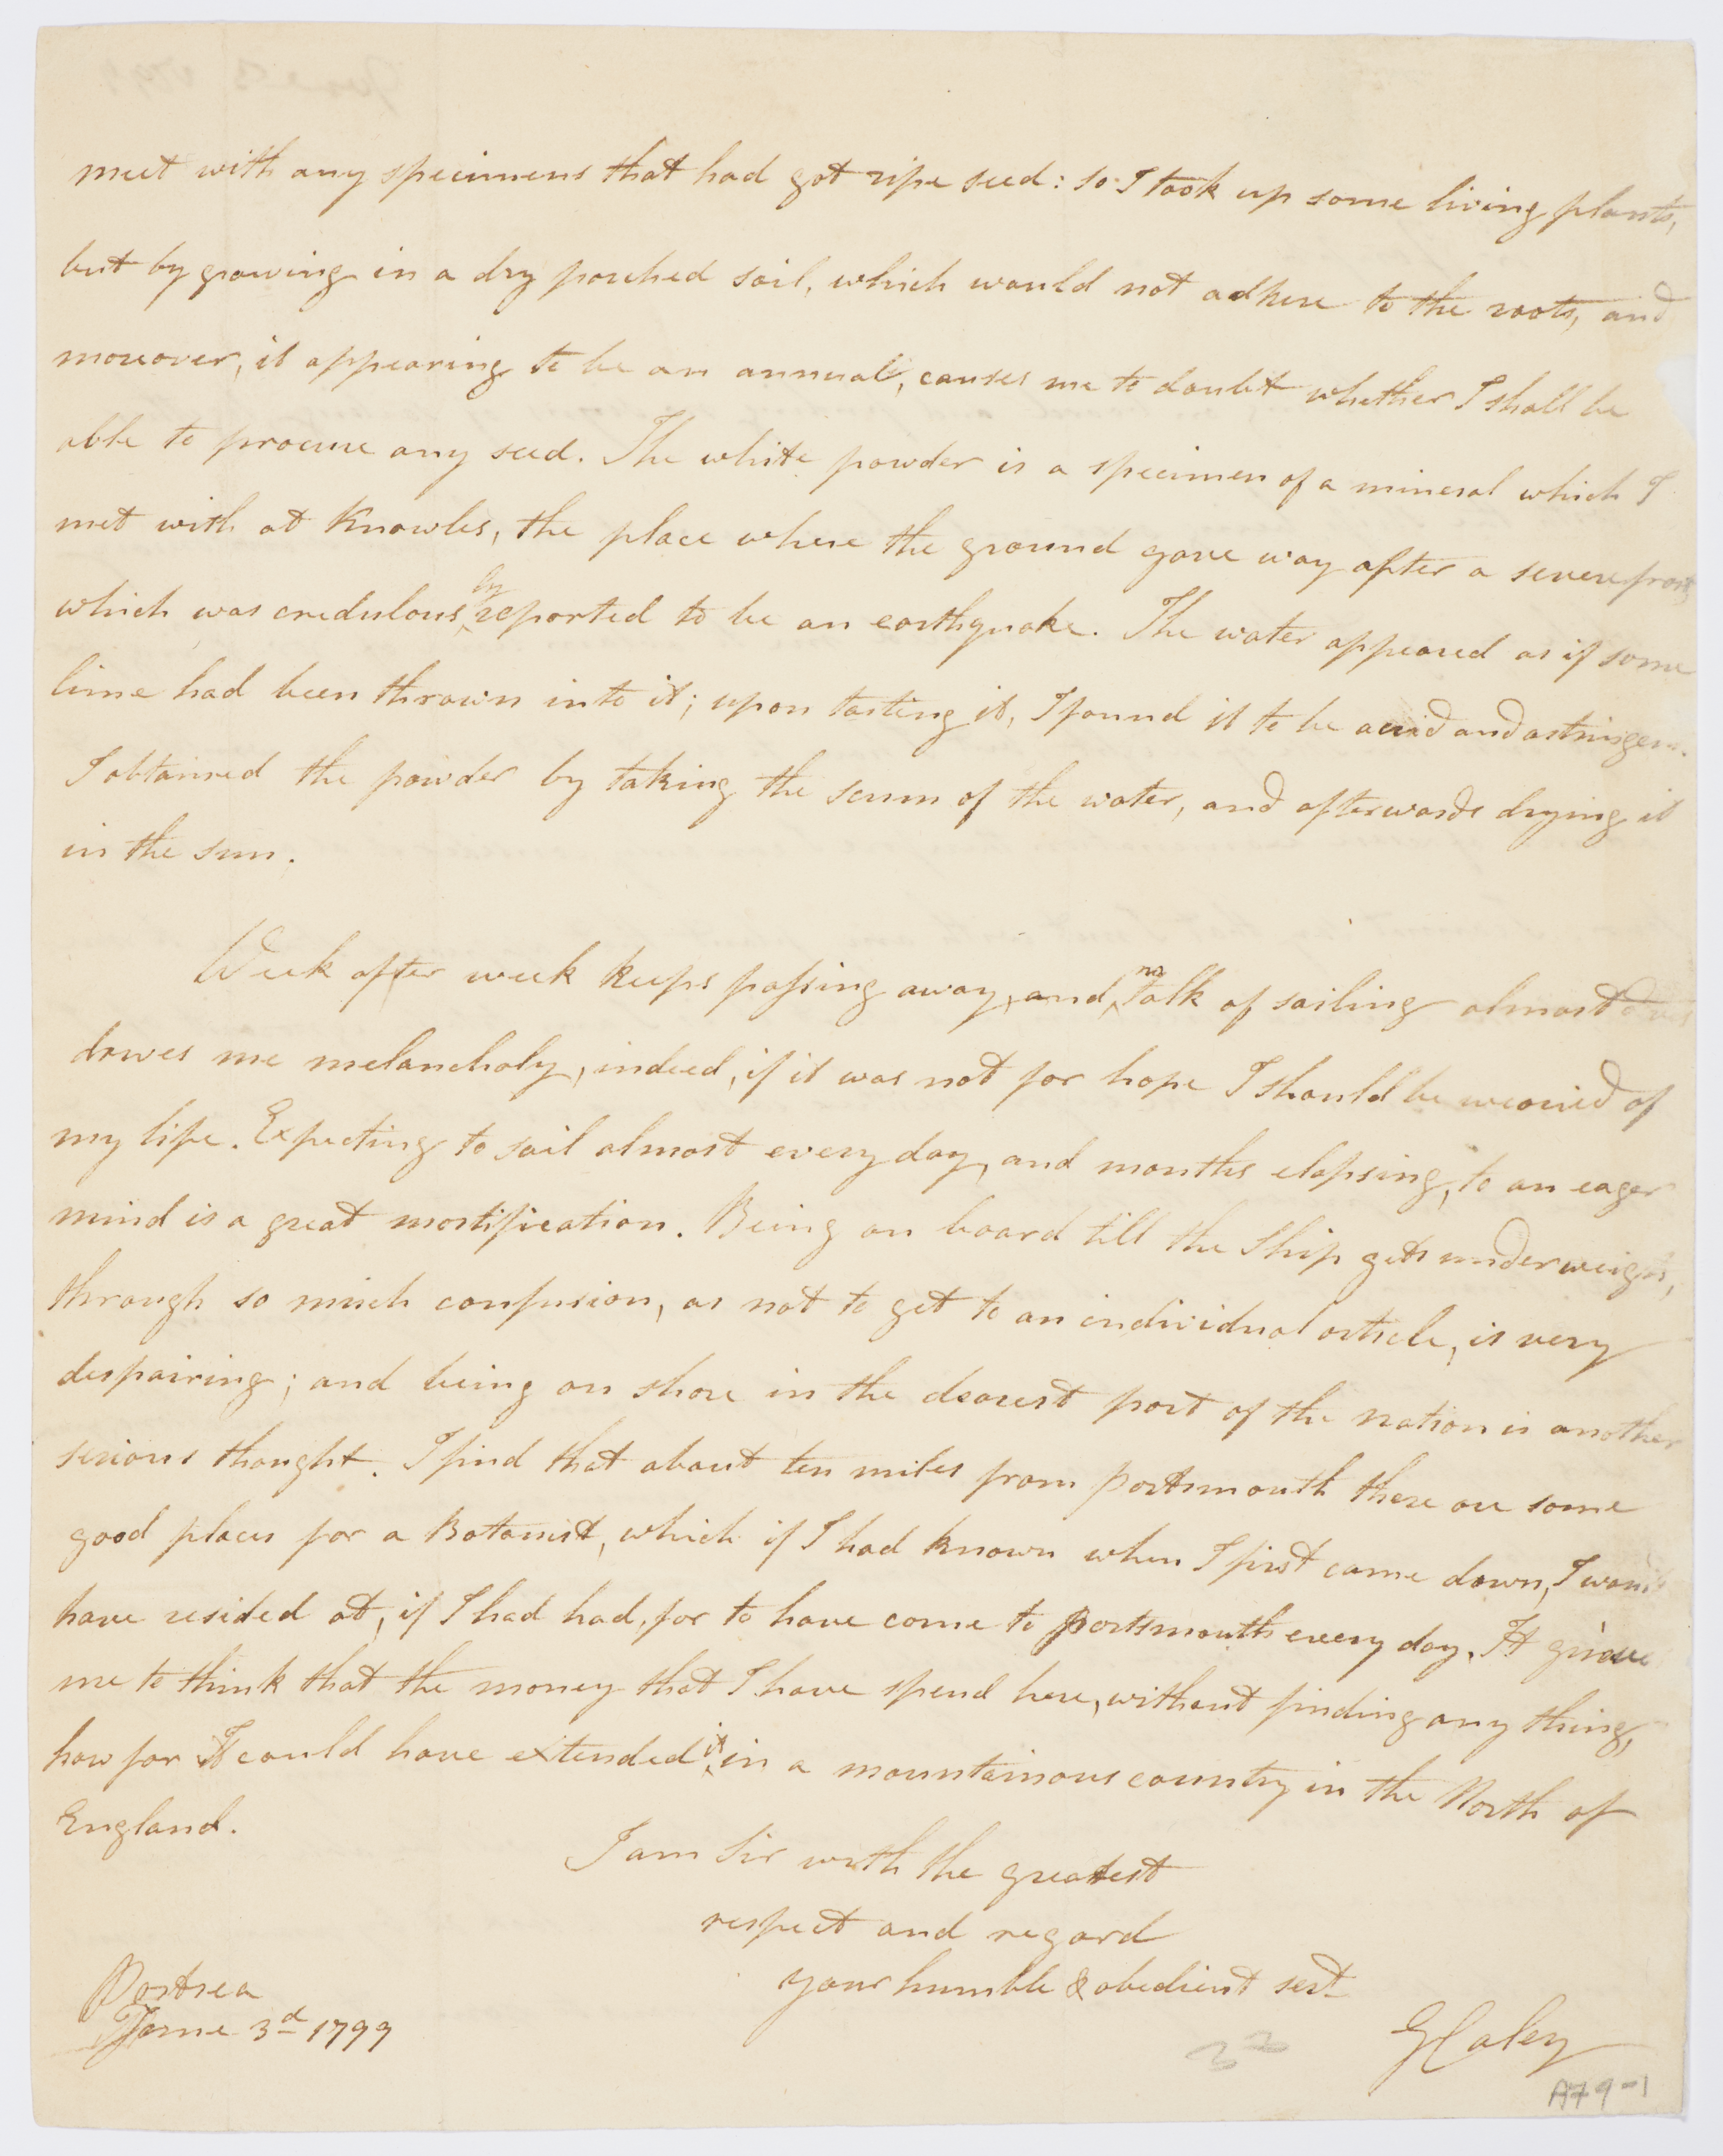 meet with any specimens that had got ripe seed: so I took up some living plants,
but by growing in a dry parched soil, which would not adhere to the roots, and
moreover, it appearing to be an annual, causes me to doubt whether I shall be
able to procure any seed. The white powder is a specimen of a mineral which I
met with at Knowles, the place where the ground gave way after a severe frost,
which was credulously reported to be an earthquake. The water appeared as if some
lime had been thrown into it; upon tasting it, I found it to be acrid and astringent.
I obtained the powder by taking the scum of the water, and afterwards drying it
in the sun.
Week after week keeps passing away, and no talk of sailing almost
drives me melancholy, indeed, if it was not for hope I should be wearied of
my life. Expecting to sail almost every day, and months elapsing, to an eager
mind is a great mortification. Being on board till the Ship gets under weigh,
through so much confusion, as not to get to an individual article, is very
despairing; and being on shore in the dearest part of the nation is another
serious thought. I find that about ten miles from portsmouth there are some
good places for a Botanist, which if I had known when I first came down, I would
have resided at, if I had had, for to have come to portsmouth every day. It grieves
me to think that the money that I have spend here, without finding any thing,
how far I could have extended it in a mountainous country in the North of
England.
I am Sir with the greatest
respect and regard
your humble & obedient sert
G Caley
Portsea
June 3d 1799
32
A79-1